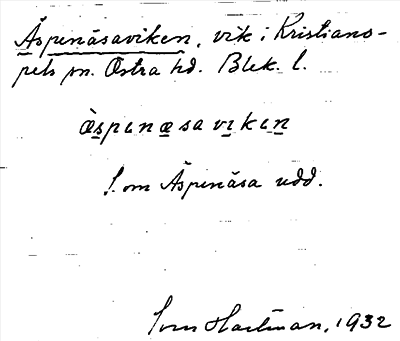 Äspenäsaviken, vik i Kristiano-
pels sn. Östra hd. Blek. l.
æ̀spɩnæsa vikɩn
S. om Äspenäsa udd.
Sven Hartman, 1932